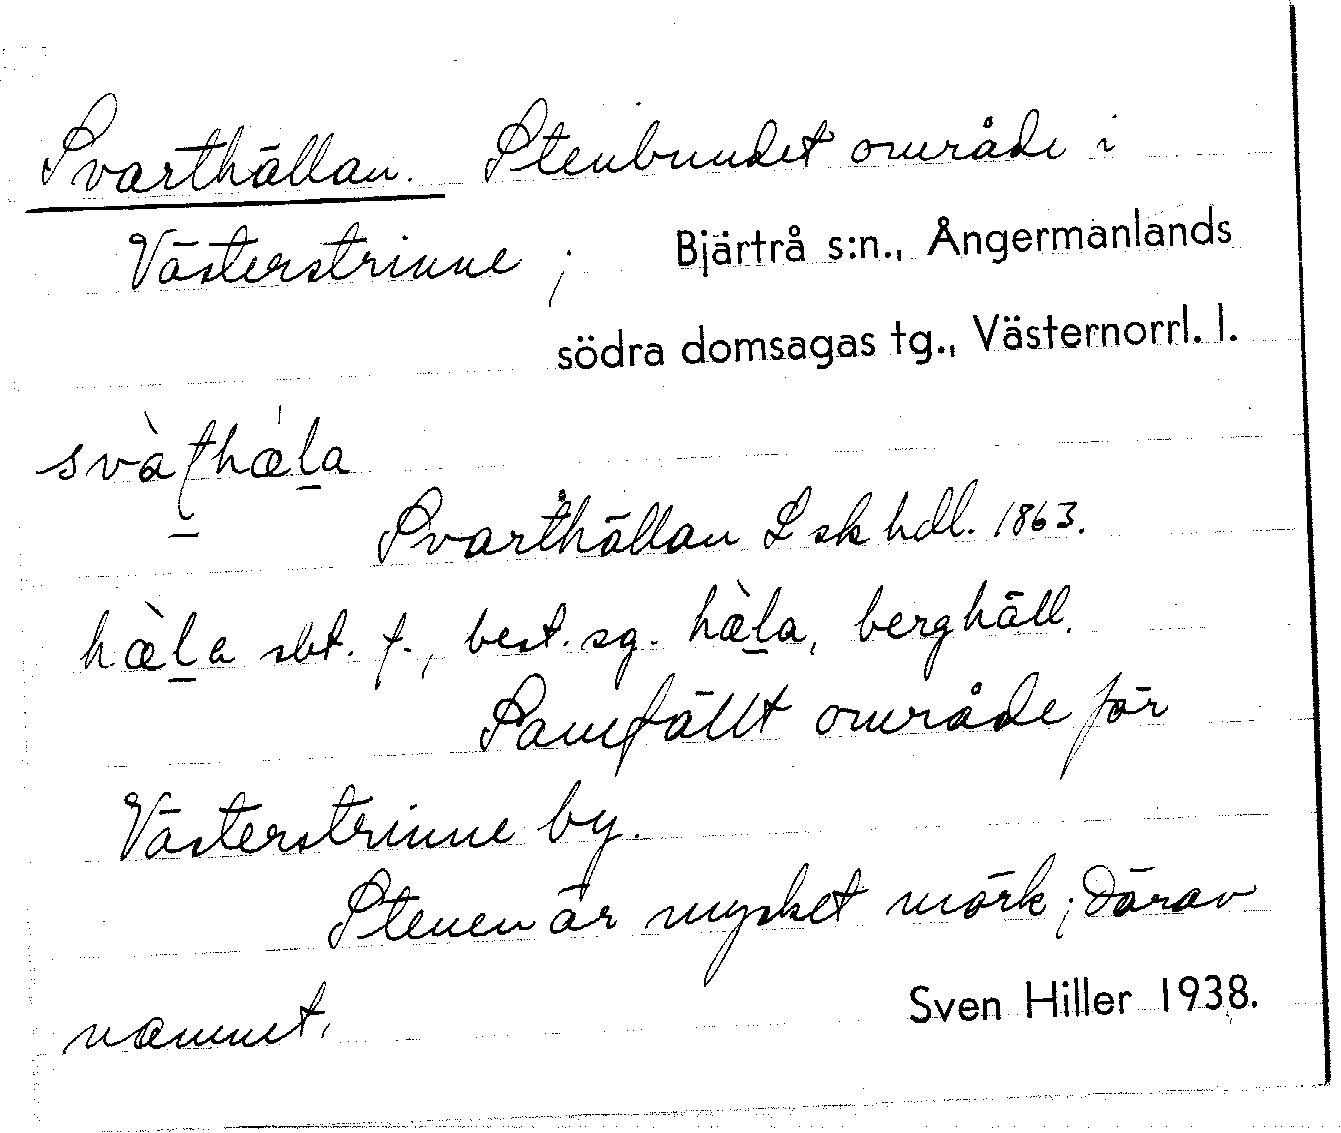 Svarthällan. Stenbundet område i
Västerstrinne; Bjärtrå s:n., Ångermanlands
södra domsagas tg., Västernorrl. l.
Svarthällan L sk hdl. 1863.
hæ̀la sbt. f., best. sg. hæ̀la, berghäll.
Samfällt område för
Västerstrinne by.
Stenen är mycket mörk; därav
namnet.
Sven Hiller 1938.